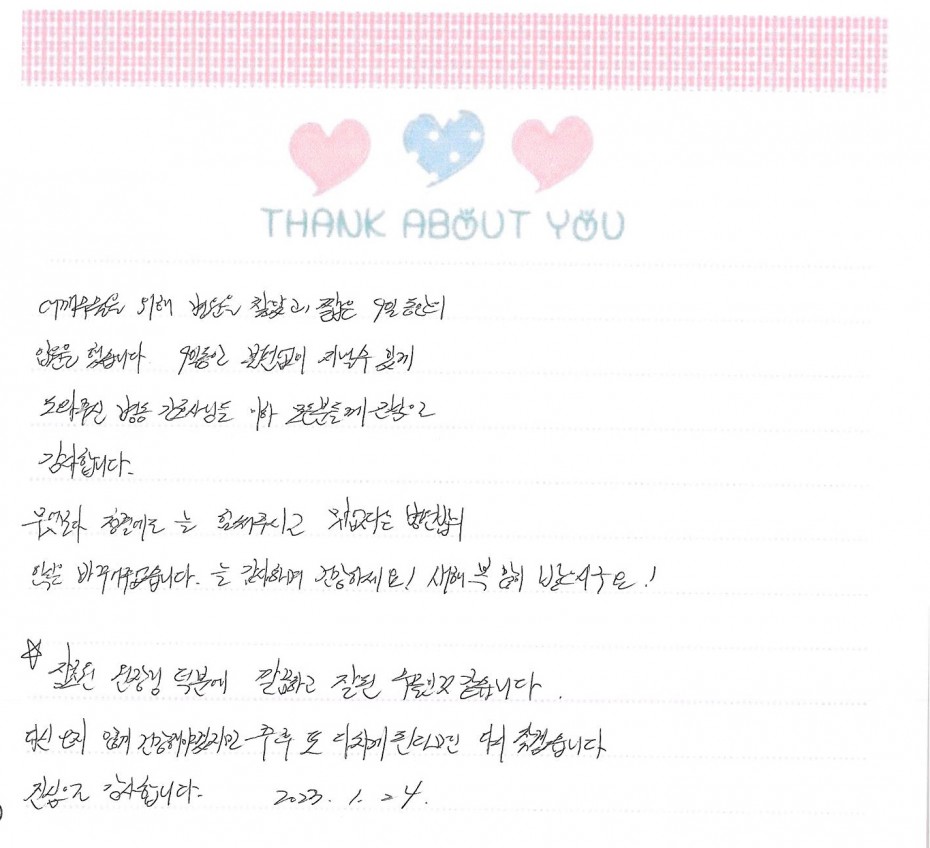 THANK ABOUT YOU
위해 병원을 찾았고, 짧은 9일 동안의
입원을 했습니다. 9일동안 불편없이 지낼수 있게
도와주신 병동 간호사님들 모든분들께
감사합니다.
청결에도 늘 힘써주시고
바꾸어주었습니다. 늘 감사하며 건강하세요! 새해 복 많이 받으시구요!
☆ 원장님 덕분에 깔끔하고 잘된 수술인것 같습니다.
다시 않게 건강해야겠지만 추후 또 다치게 된다면 다시 찾겠습니다
진심으로 감사합니다. 2023. 1. 24.